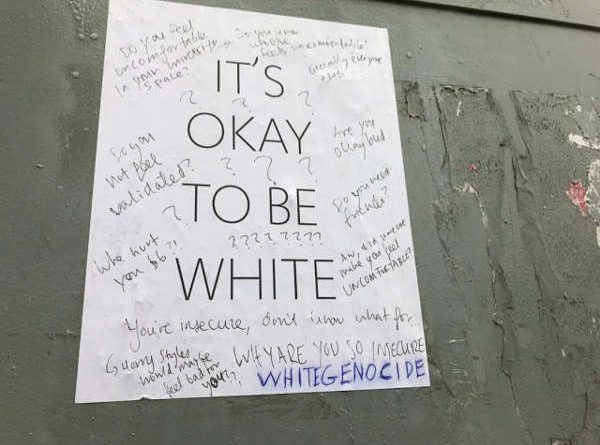 Do you feel
uncomfortable
in your university
space?
Do you know
who else
feels uncomfortable?
Literally everyone
else!!
IT'S
? ? ?
OKAY
Do you
not feel
validated?
Are you
okay bud?
? ? ? ?
? TO BE
Do you need
friends?
???????
Who hurt
you bb?!
WHITE
Aw, did someone
make you feel
UNCOMFORTABLE?
You're insecure, don't know what for,
Harry Styles
would maybe
feel bad for
you??
WHY ARE YOU SO INSECURE
WHITEGENOCIDE